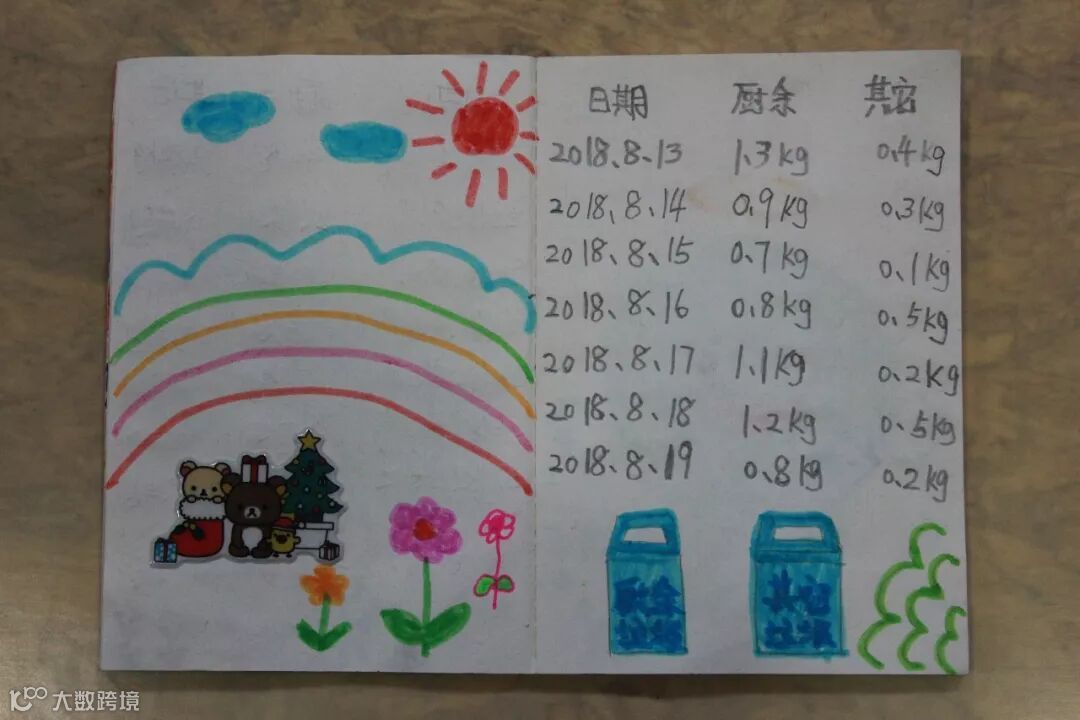 日期 厨余 其它
2018、8、13 1、3kg 0、4kg
2018、8、14 0、9kg 0、3kg
2018、8、15 0、7kg 0、1kg
2018、8、16 0、8kg 0、5kg
2018、8、17 1、1kg 0、2kg
2018、8、18 1、2kg 0、5kg
2018、8、19 0、8kg 0、2kg
厨余 其它
垃圾 垃圾
大数跨境